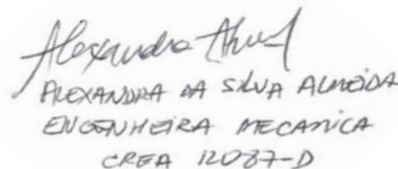 Alexandra Almeida
ALEXANDRA DA SILVA ALMEIDA
ENGENHEIRA MECANICA
CREA 12087-D